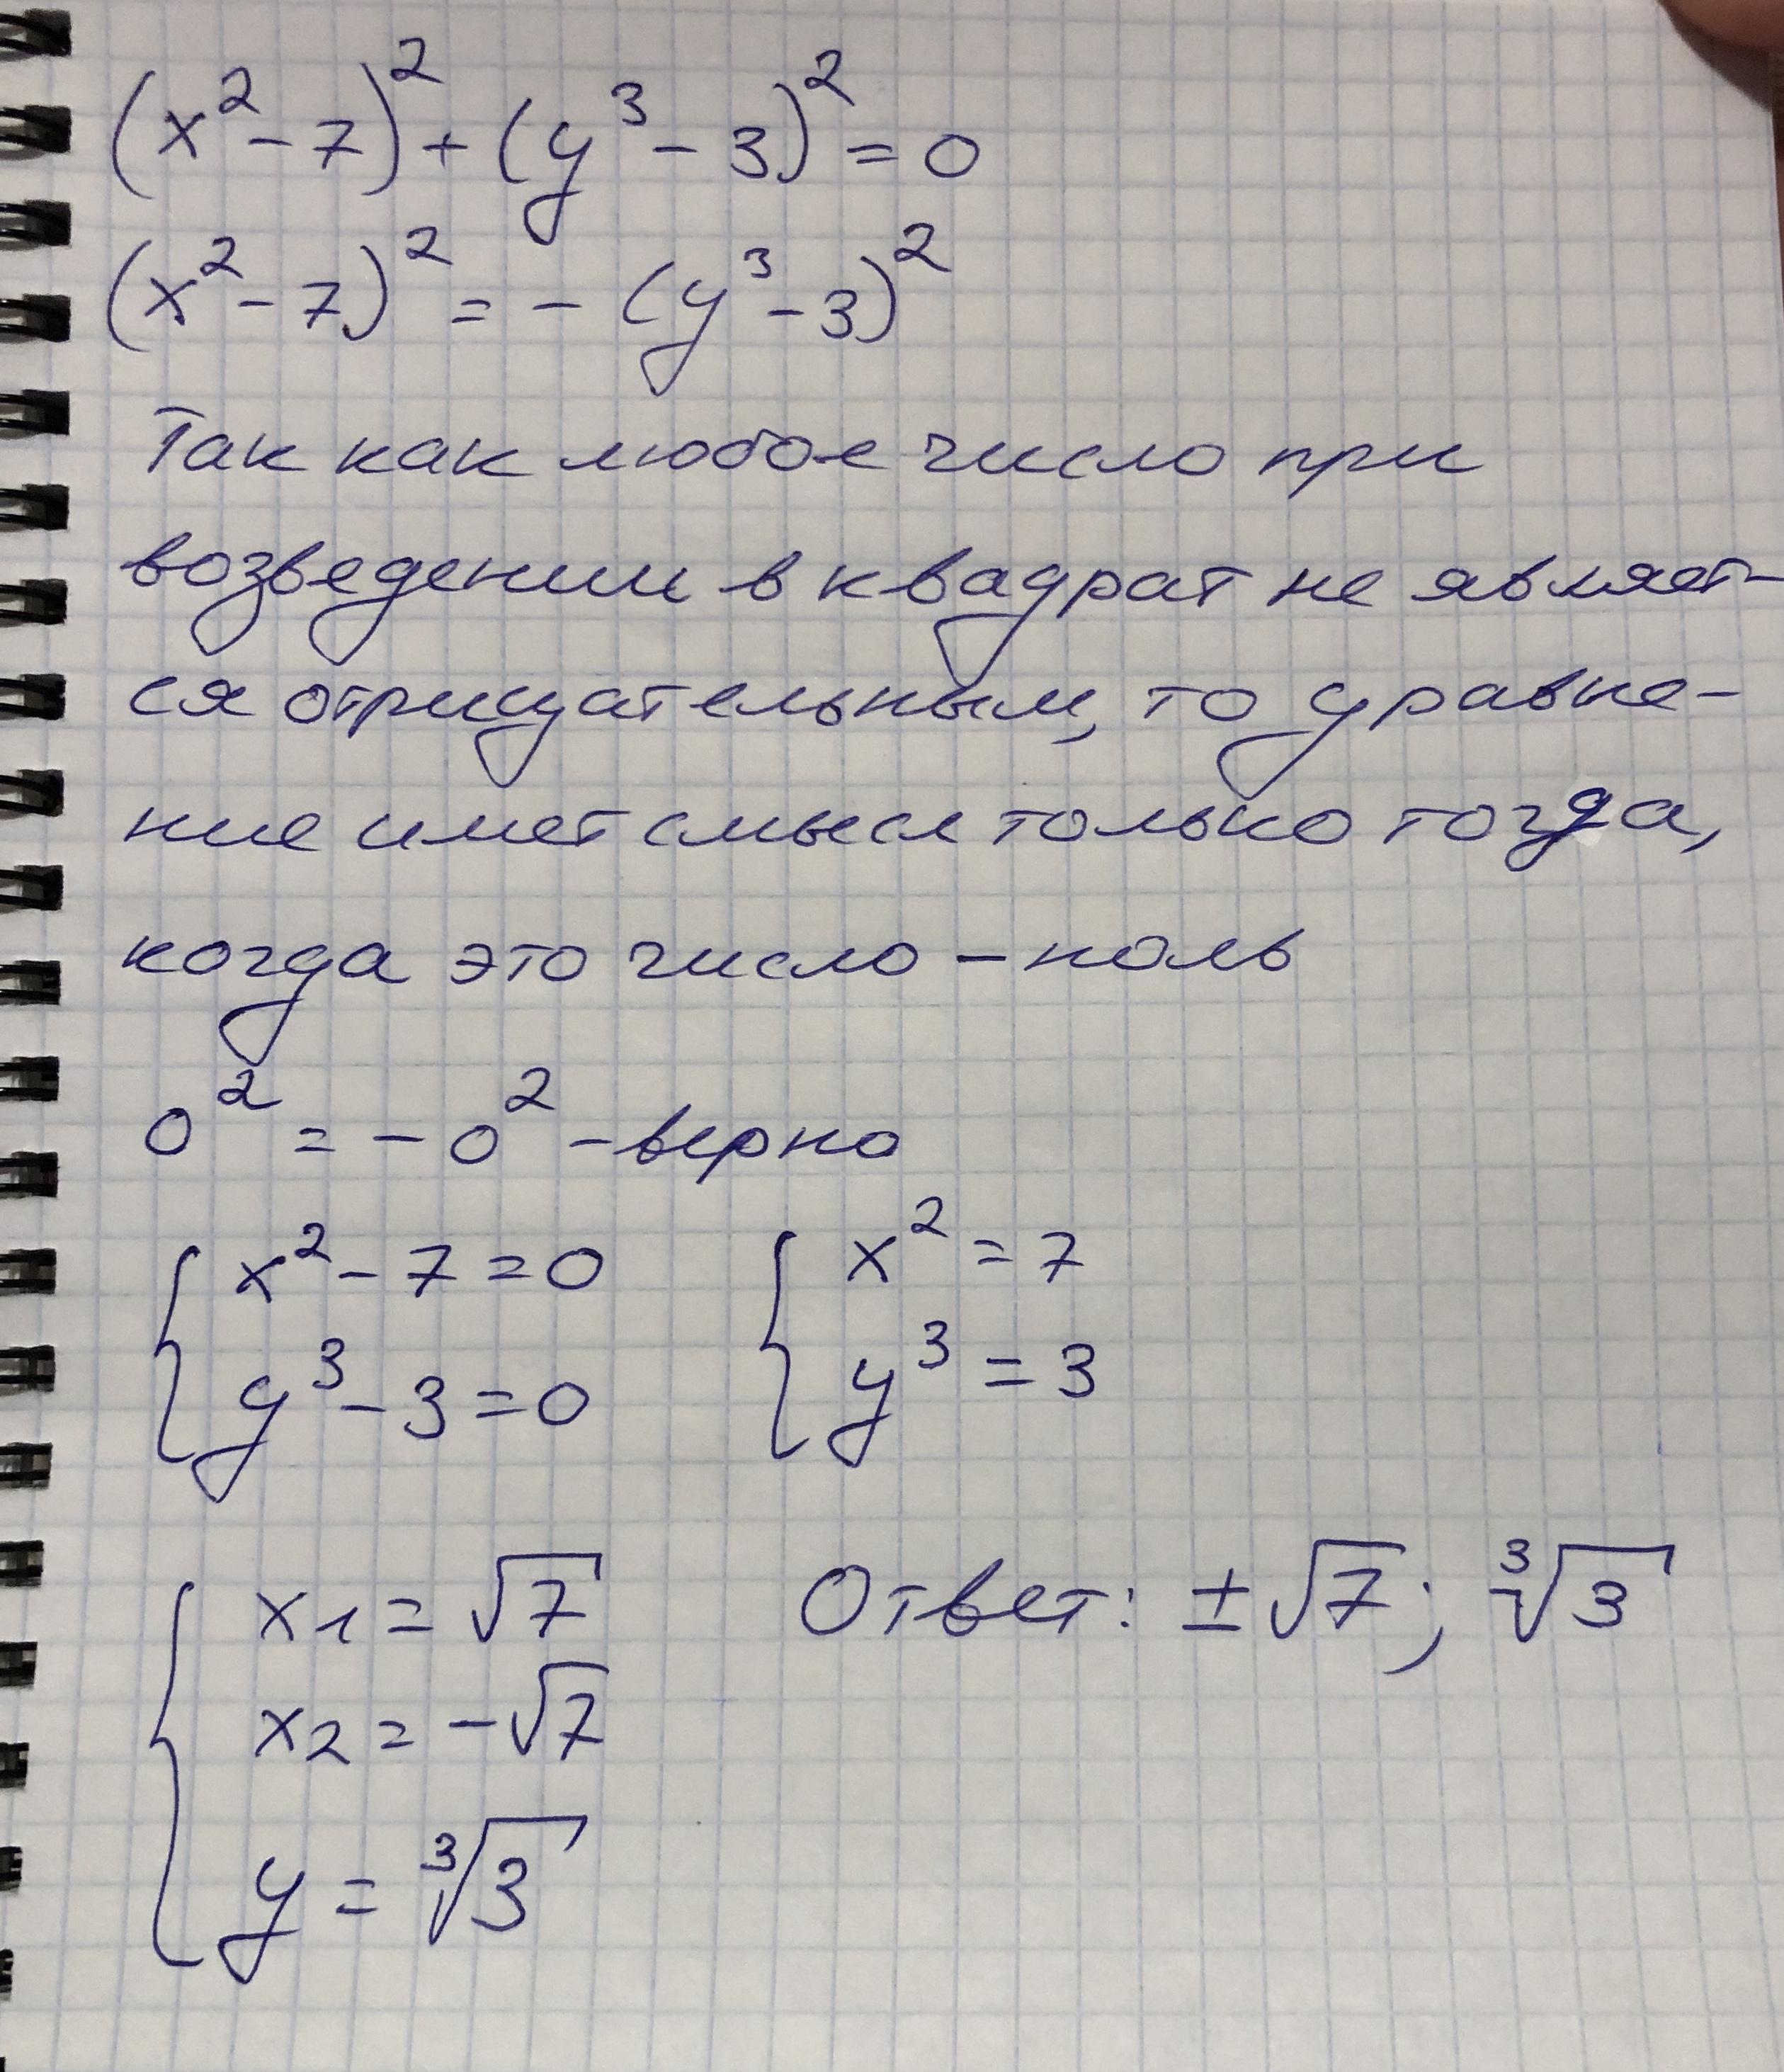 (x² - 7)² + (y³ - 3)² = 0
(x² - 7)² = - (y³ - 3)²
Так как любое число при
возведении в квадрат не являет-
ся отрицательным, то уравне-
ние имет смысл только тогда,
когда это число - ноль
0² = - 0² - верно
{ x² - 7 = 0 { x² = 7
y³ - 3 = 0 y³ = 3
{ x1 = √7 Ответ: ± √7 ; ³√3
x2 = - √7
y = ³√3